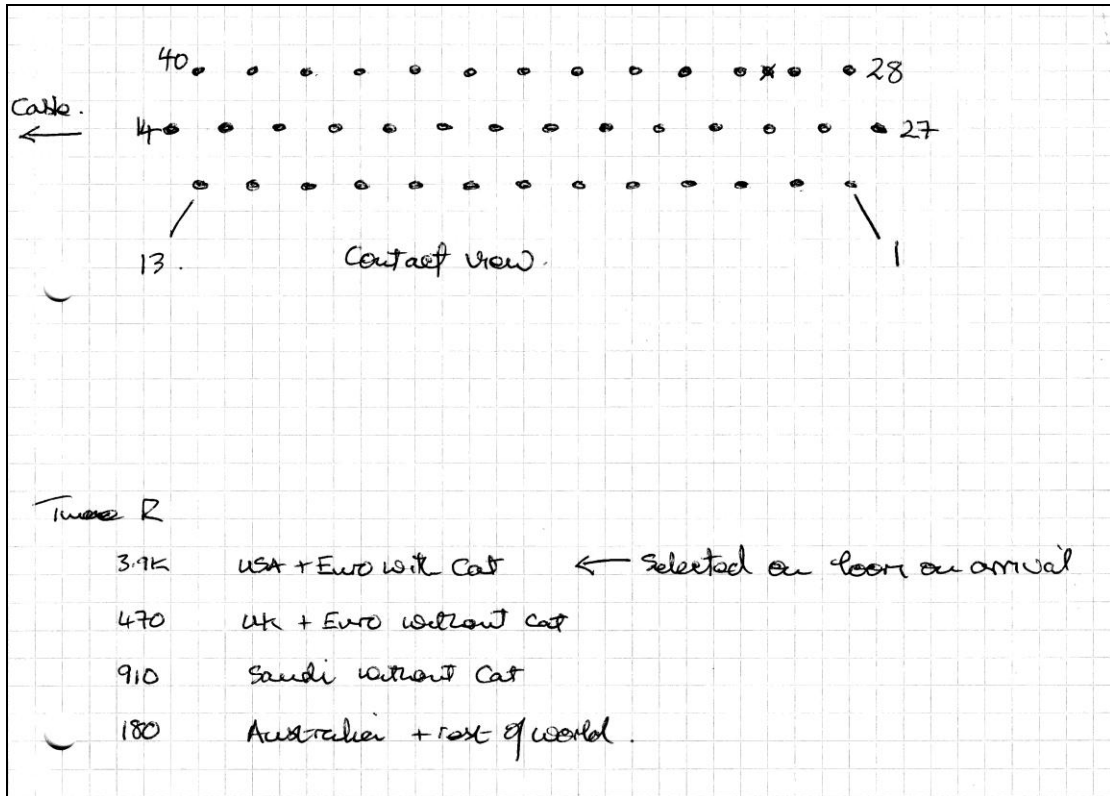 40 28
Cable.
14 27
13. 1
Contact view.
Tune R
3.9K USA + Euro with Cat ← Selected on loom on arrival
470 UK + Euro without Cat
910 Saudi without Cat
180 Australia + rest of world.